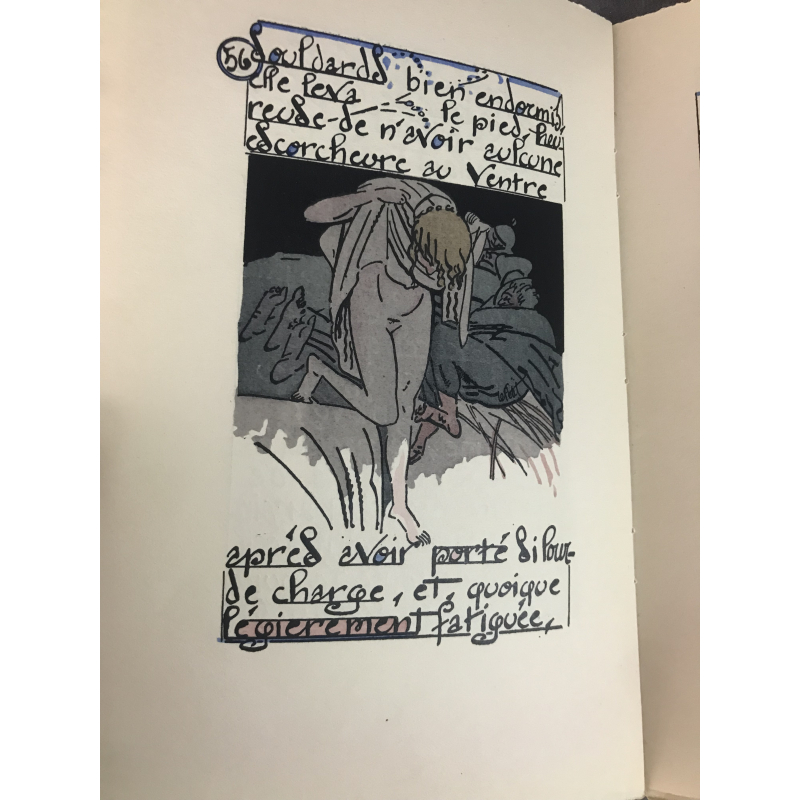 56
souldards bien endormis,
elle leva le pied, heu
reuse-de n'avoir aulcune
escorcheure au Ventre
après avoir porté si lour-
de charge, et, quoique
légièrement fatiguée,